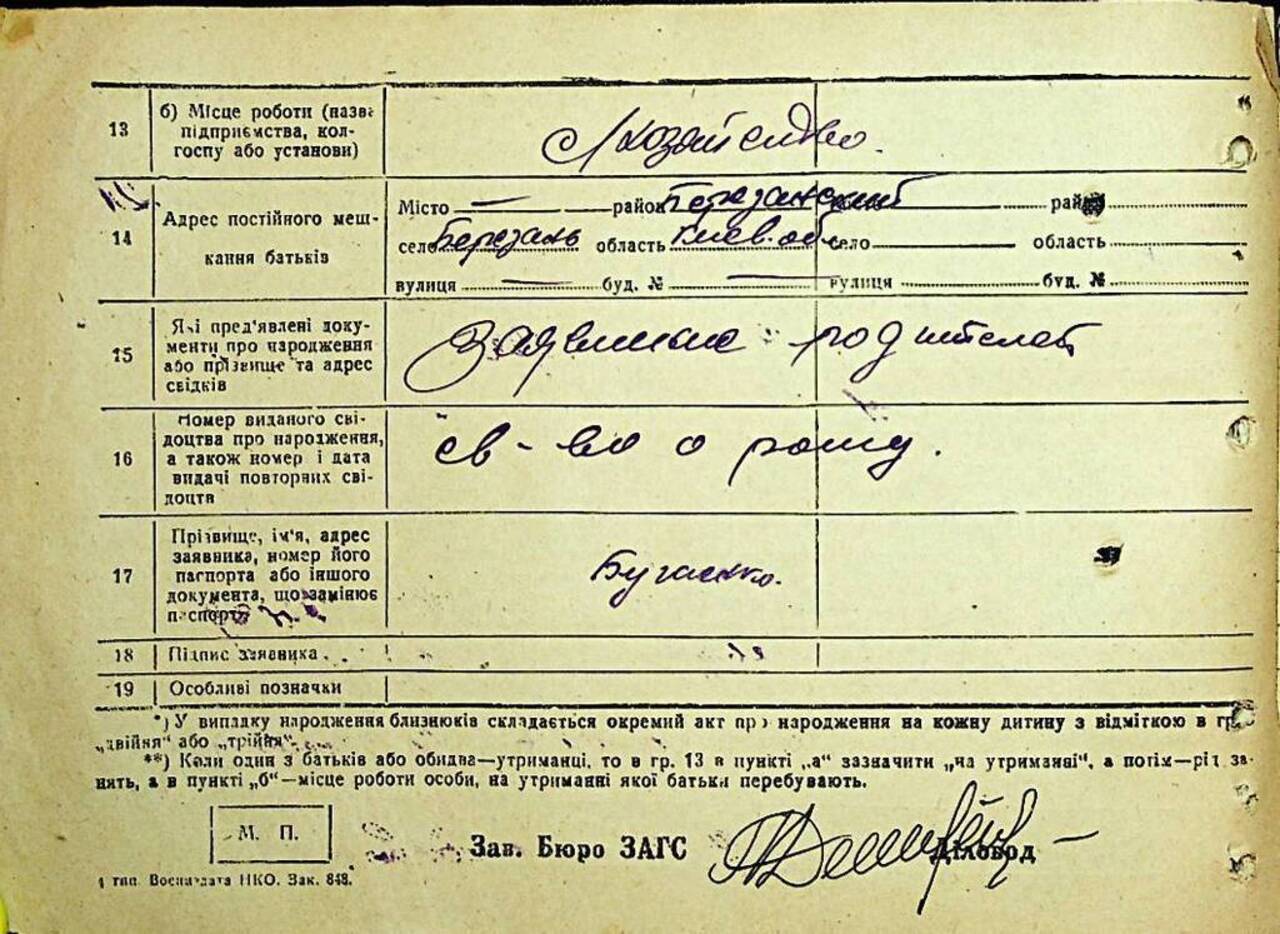 13
б) Місце роботи (назва
підприємства, кол-
госпу або установи)
с/хозяйство.
14
Адрес постійного меш-
кання батьків
Місто — район Березанский район
село Березань область Киев. об. село область
вулиця — буд. № — вулиця буд. №
15
Які пред'явлені доку-
менти про народження
або прізвище та адрес
свідків
Заявление родителей
16
Номер виданого сві-
доцтва про народження,
а також номер і дата
видачі повторних сві-
доцтв
св-во о рожд.
17
Прізвище, ім'я, адрес
заявника, номер його
паспорта або іншого
документа, що замінює
паспорта
18 Підпис заявника
19 Особливі позначки
*) У випадку народження близнюків складається окремий акт про народження на кожну дитину з відміткою в гр.
„двійня“ або „трійня“.
**) Коли один з батьків або обидва—утриманці, то в гр. 13 в пункті „а“ зазначити „на утриманні“, а потім—рід за-
нять, а в пункті „б“—місце роботи особи, на утриманні якої батьки перебувають.
М. П.
Зав. Бюро ЗАГС Діловод
1 тип. Воениздата НКО. Зак. 848.